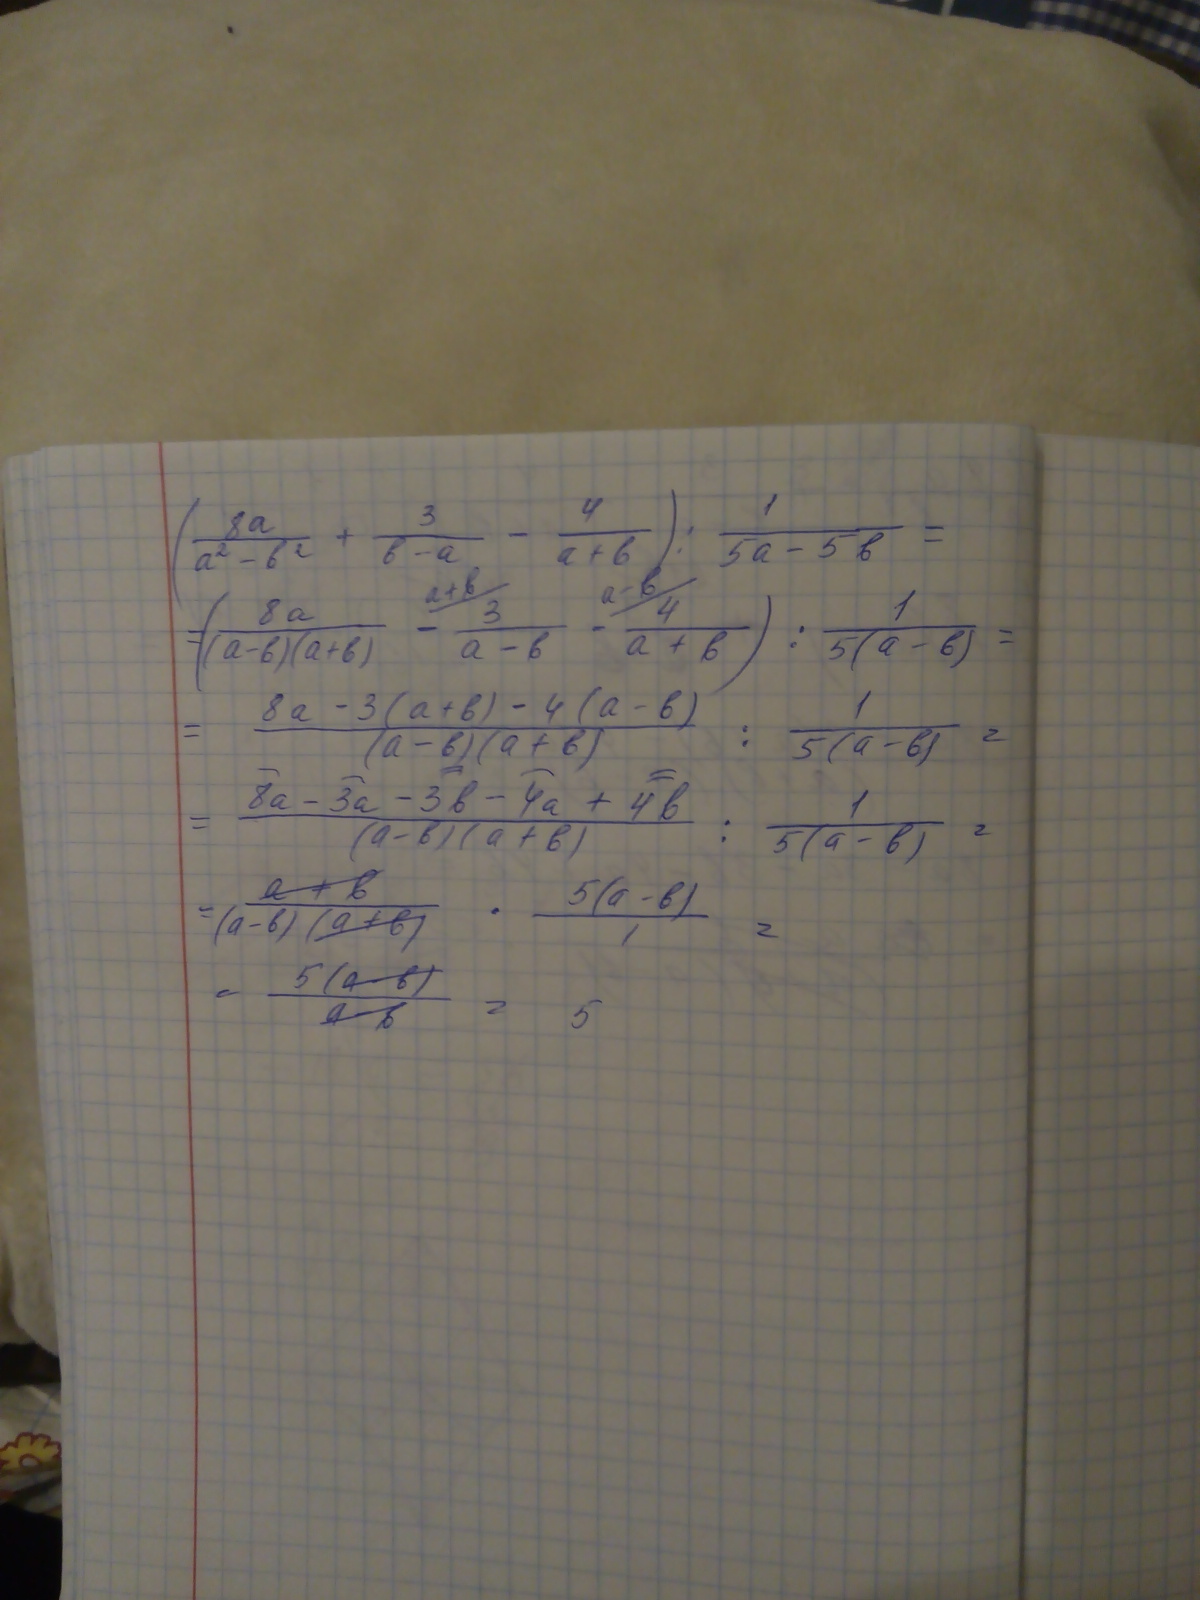 (8a/(a² - b²) + 3/(b - a) - 4/(a + b)) : 1/(5a - 5b) =
= (8a/((a-b)(a+b)) - a+b/ 3/(a - b) - a-b/ 4/(a + b)) : 1/(5(a - b)) =
= (8a - 3(a+b) - 4(a - b))/((a - b)(a + b)) : 1/(5(a - b)) =
= (8a - 3a - 3b - 4a + 4b)/((a - b)(a + b)) : 1/(5(a - b)) =
= (a + b)/((a-b)(a+b)) · 5(a - b)/1 =
= 5(a-b)/(a-b) = 5